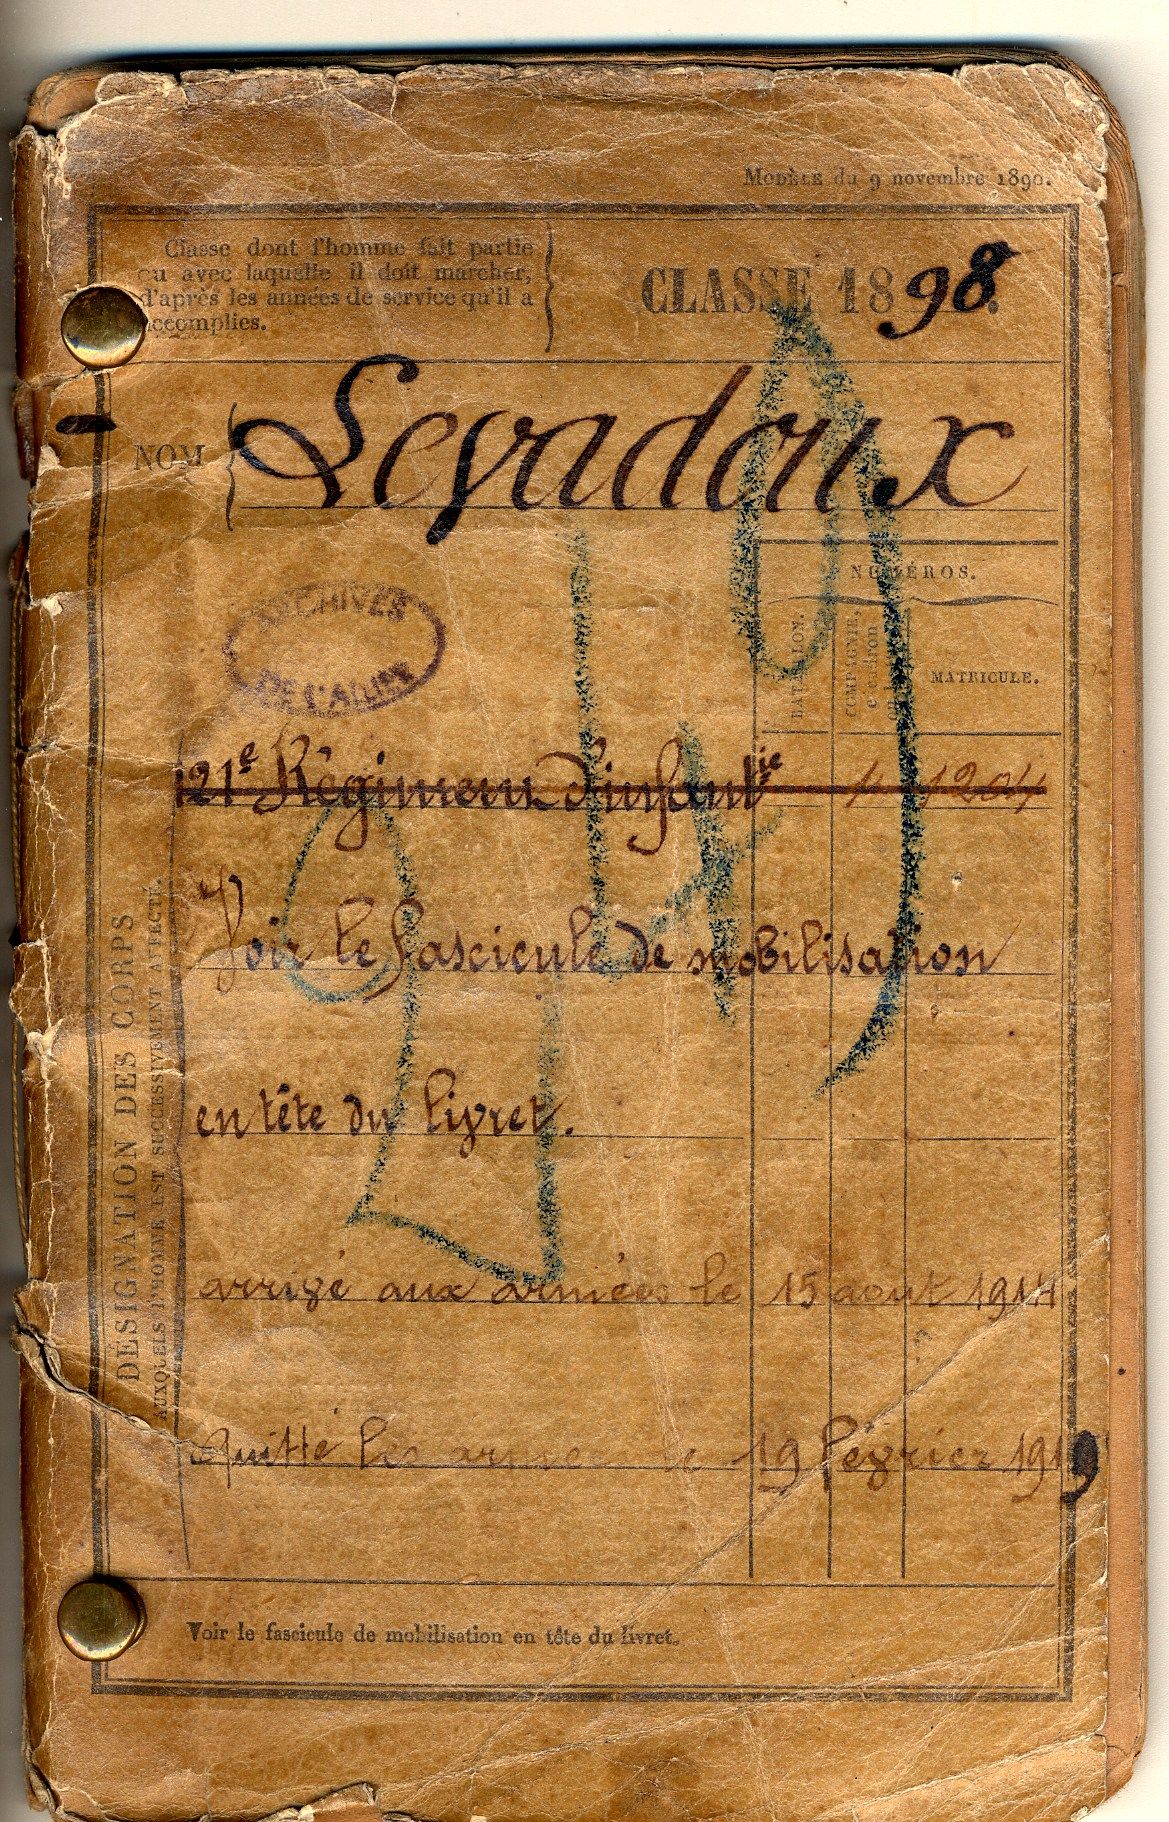 MODÈLE du 9 novembre 1890.
Classe dont l'homme fait partie
ou avec laquelle il doit marcher,
d'après les années de service qu'il a
accomplies.
CLASSE 1898.
NOM
Levadoux
NUMÉROS.
BATAILLON.
COMPAGNIE,
escadron
MATRICULE.
ARCHIVES
DE L'ALLIER
121e Régiment d'infantie 4 1204
Voir le fascicule de mobilisation
en tête du livret.
arrivé aux armées le 15 aout 1914
Quitté les armées le 19 février 1919
DÉSIGNATION DES CORPS
AUXQUELS L'HOMME EST SUCCESSIVEMENT AFFECTÉ.
Voir le fascicule de mobilisation en tête du livret.